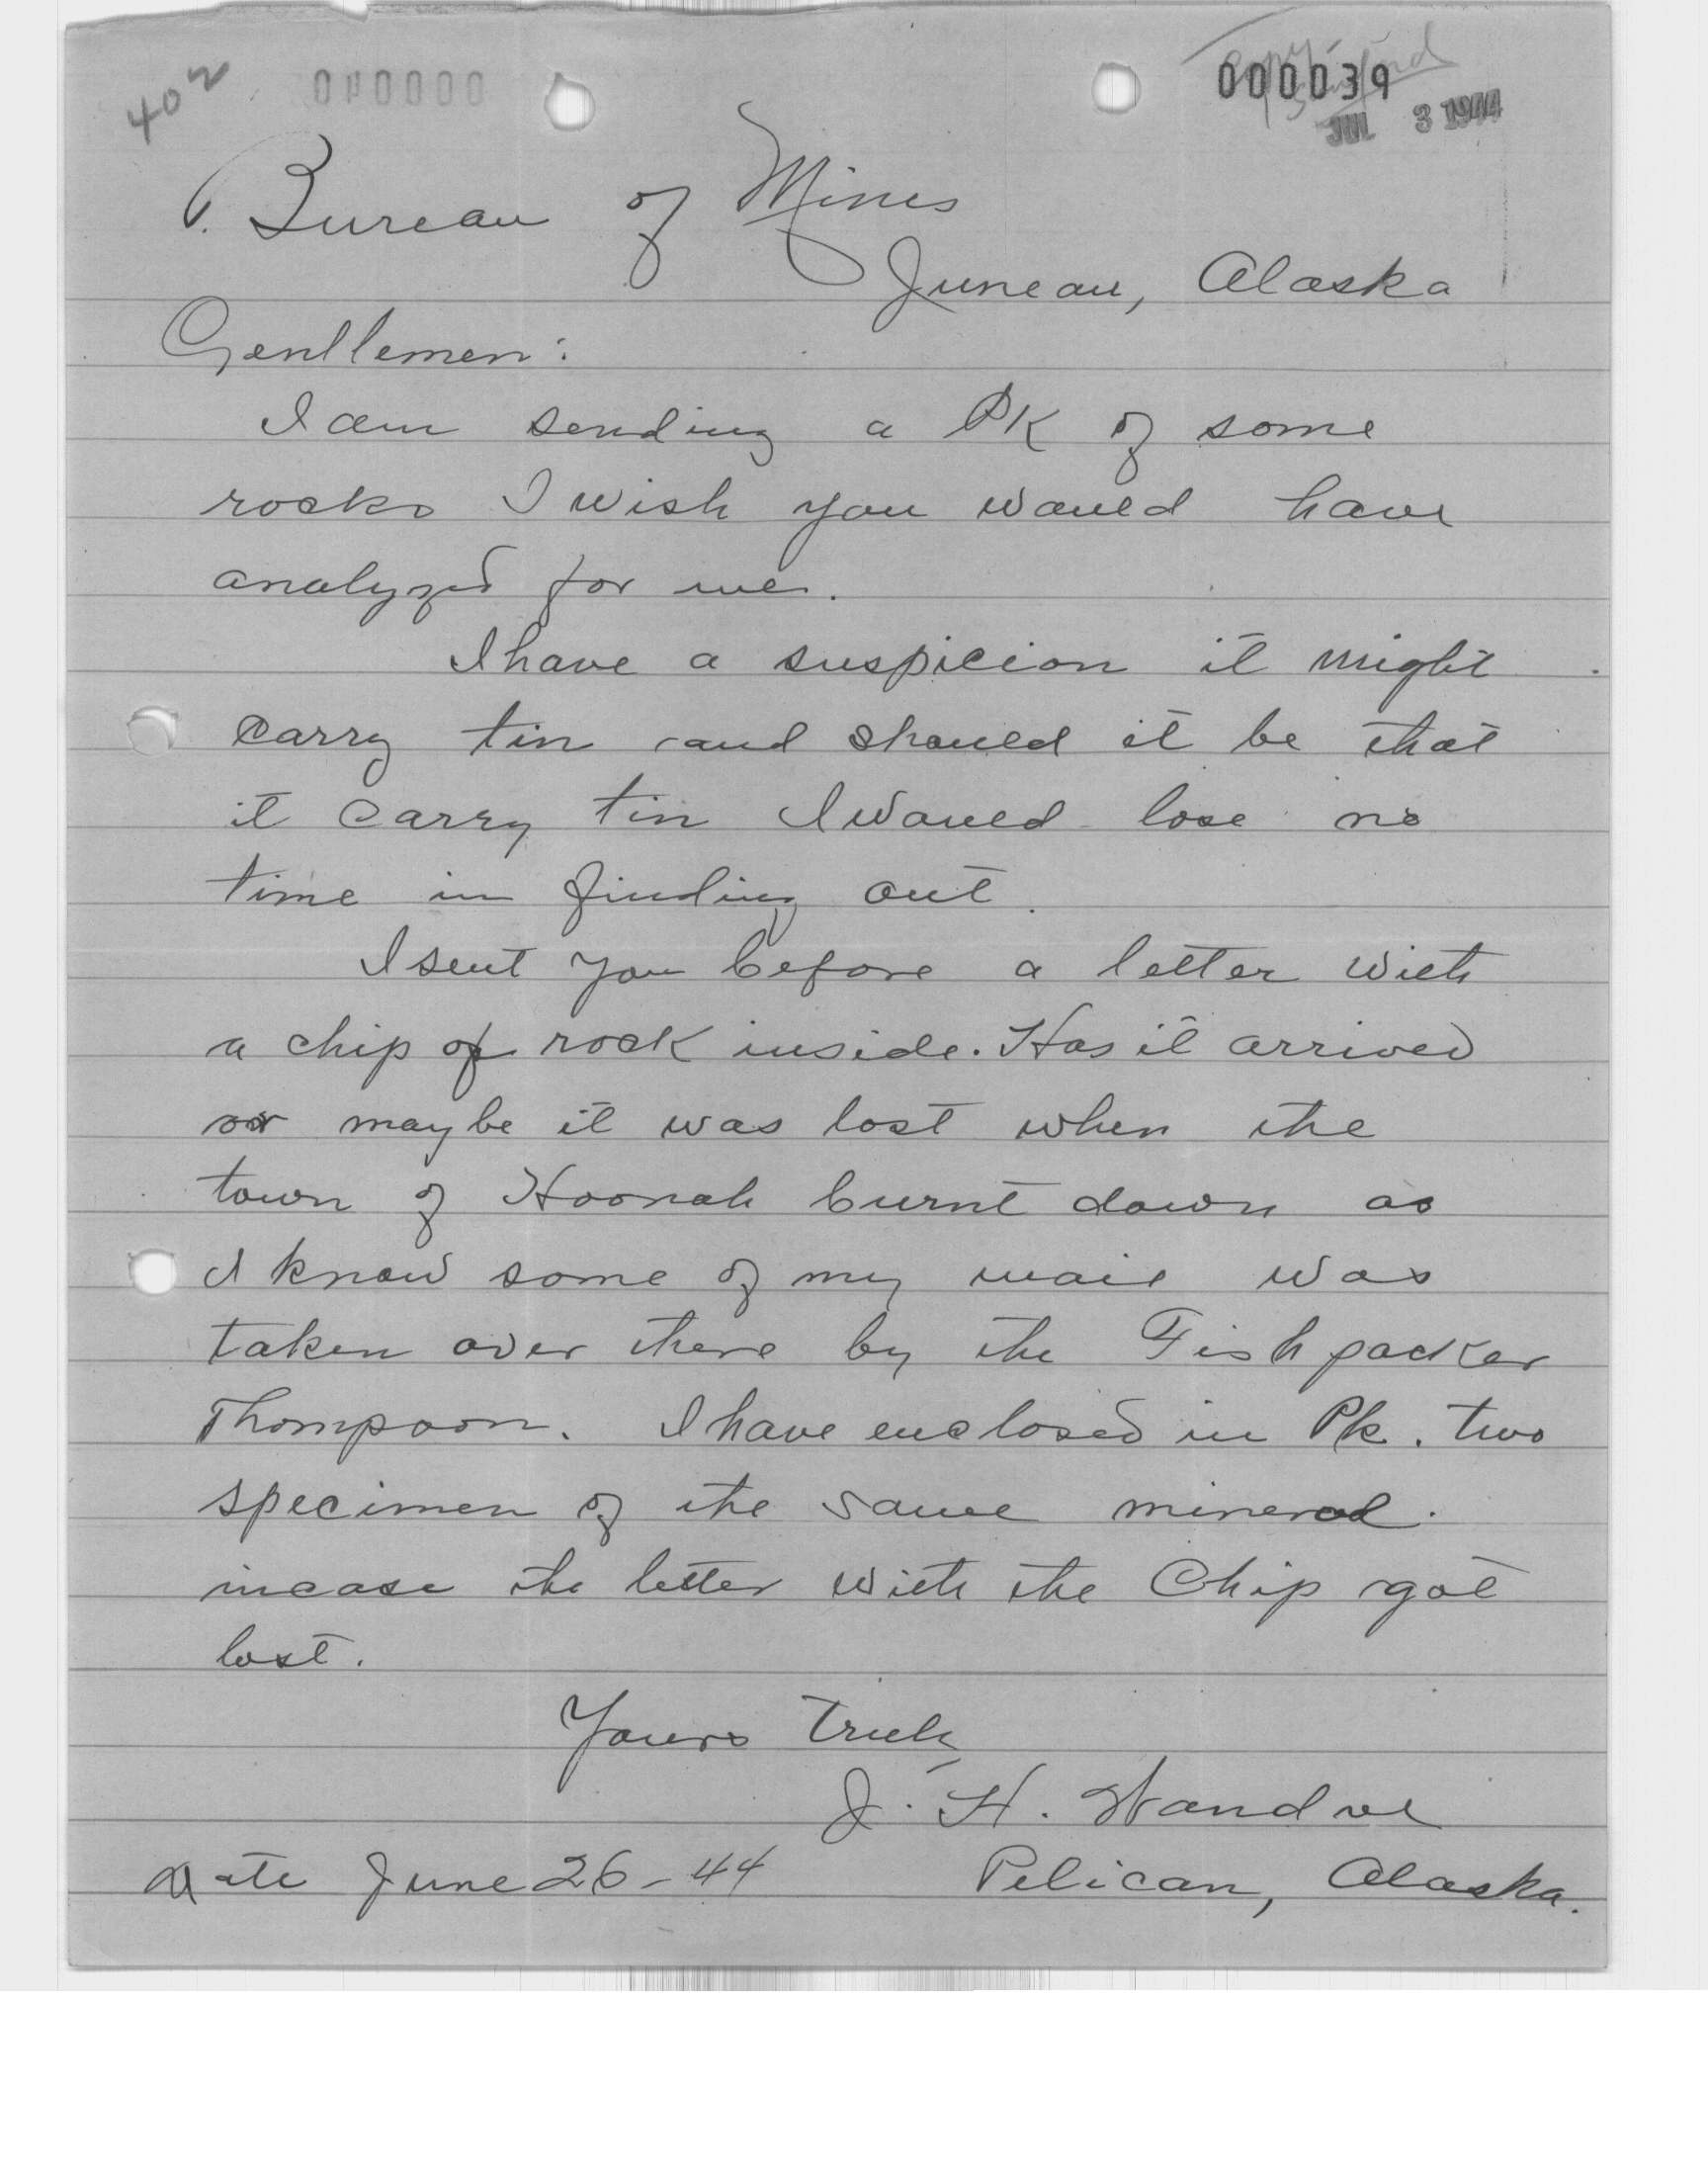 402 000000 000039
JUL 3 1944
Bureau of Mines
Juneau, Alaska
Gentlemen:
I am sending a PK of some
rocks I wish you would have
analyzed for me.
I have a suspicion it might
carry tin and should it be that
it carry tin I would lose no
time in finding out.
I sent you before a letter with
a chip of rock inside. Has it arrived
or maybe it was lost when the
town of Hoonah burnt down as
I know some of my mail was
taken over there by the Fish packer
Thompson. I have enclosed in Pk. two
specimen of the same mineral.
incase the letter with the Chip got
lost.
Yours Truly
J. H.
Date June 26-44 Pelican, Alaska.